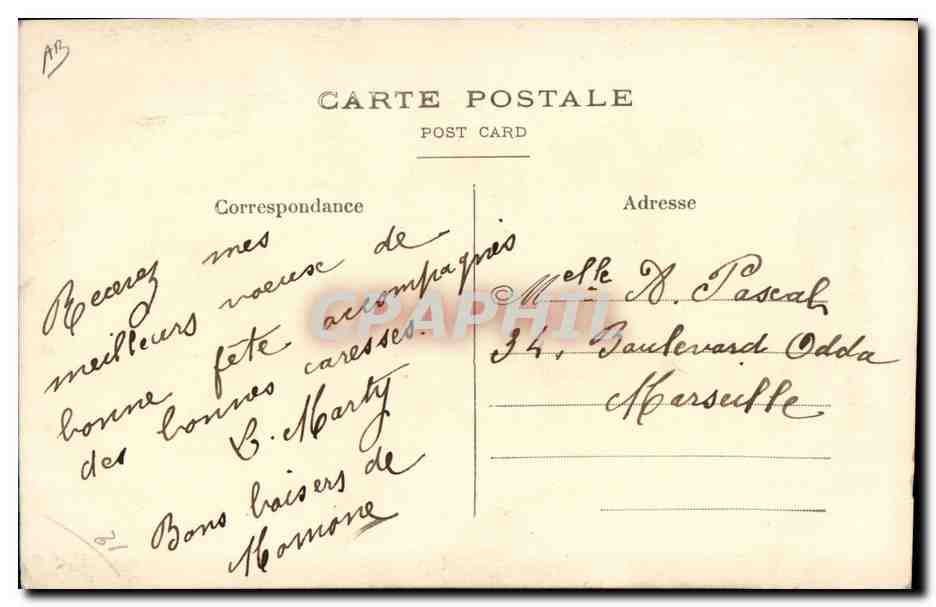 AB
CARTE POSTALE
POST CARD
Correspondance
Recevez mes
meilleurs voeux de
bonne fête accompagnés
des bonnes caresses.
L. Marty
Bons baisers de
Momone
Adresse
Melle A. Pascal
34, Boulevard Odda
Marseille
© CPAPHIL